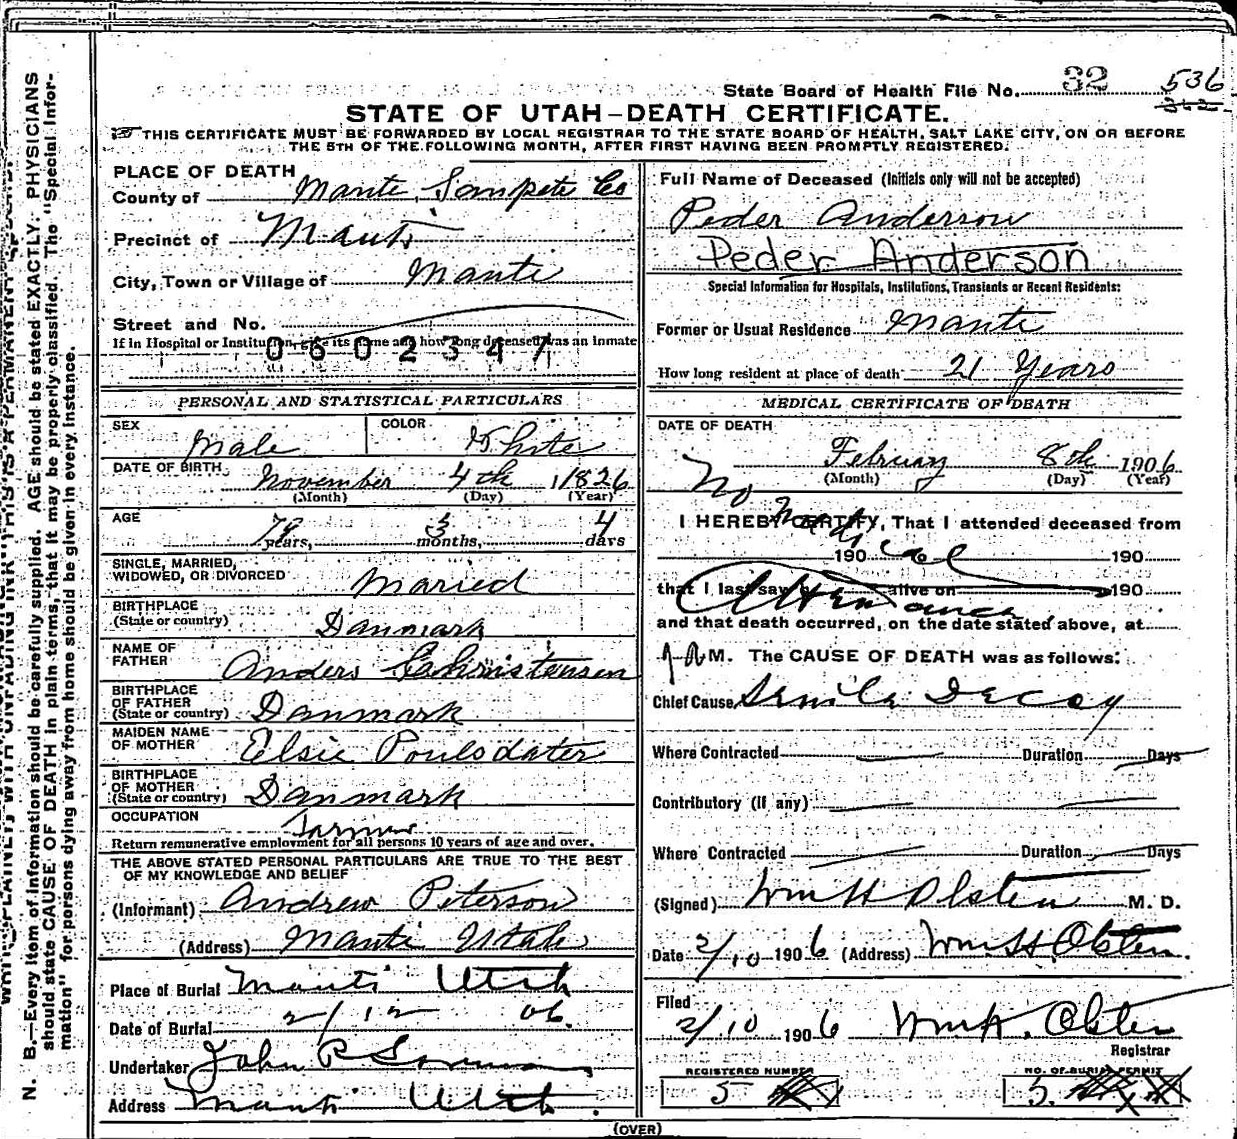 State Board of Health File No. 32 536
STATE OF UTAH—DEATH CERTIFICATE.
THIS CERTIFICATE MUST BE FORWARDED BY LOCAL REGISTRAR TO THE STATE BOARD OF HEALTH, SALT LAKE CITY, ON OR BEFORE
THE 5TH OF THE FOLLOWING MONTH, AFTER FIRST HAVING BEEN PROMPTLY REGISTERED.
PLACE OF DEATH
County of Manti, Sanpete Co
Precinct of Manti
City, Town or Village of Manti
Street and No.
If in Hospital or Institution, give its name and how long deceased was an inmate
0602347
PERSONAL AND STATISTICAL PARTICULARS
SEX Male COLOR White
DATE OF BIRTH November 4th 1826
(Month) (Day) (Year)
AGE 79 years, 3 months, 4 days
SINGLE, MARRIED,
WIDOWED, OR DIVORCED Maried
BIRTHPLACE
(State or country) Danmark
NAME OF
FATHER Anders Christensen
BIRTHPLACE
OF FATHER
(State or country) Danmark
MAIDEN NAME
OF MOTHER Elsie Poulsdater
BIRTHPLACE
OF MOTHER
(State or country) Danmark
OCCUPATION Farmer
Return remunerative employment for all persons 10 years of age and over.
THE ABOVE STATED PERSONAL PARTICULARS ARE TRUE TO THE BEST
OF MY KNOWLEDGE AND BELIEF
(Informant) Andrew Peterson
(Address) Manti Utah
Place of Burial Manti Utah
Date of Burial 2/12 06.
Undertaker John P
Address Manti Utah.
Full Name of Deceased (Initials only will not be accepted)
Peder Anderson
Peder Anderson
Special Information for Hospitals, Institutions, Transients or Recent Residents:
Former or Usual Residence Manti
How long resident at place of death 21 Years
MEDICAL CERTIFICATE OF DEATH
DATE OF DEATH
February 8th 1906
(Month) (Day) (Year)
No Medical Attendance
I HEREBY CERTIFY, That I attended deceased from
190 190
that I last saw h alive on 190
and that death occurred, on the date stated above, at
M. The CAUSE OF DEATH was as follows:
Chief Cause Senile Decay
Where Contracted Duration Days
Contributory (if any)
Where Contracted Duration Days
(Signed) Wm H Olsten M. D.
Date 2/10 1906 (Address) Wm H Olsten.
Filed
2/10 1906 Wm H. Olsten
Registrar
REGISTERED NUMBER
5
NO. OF BURIAL PERMIT
5.
(OVER)
N. B.—Every item of information should be carefully supplied. AGE should be stated EXACTLY. PHYSICIANS
should state CAUSE OF DEATH in plain terms, that it may be properly classified. The "Special Infor-
mation" for persons dying away from home should be given in every instance.